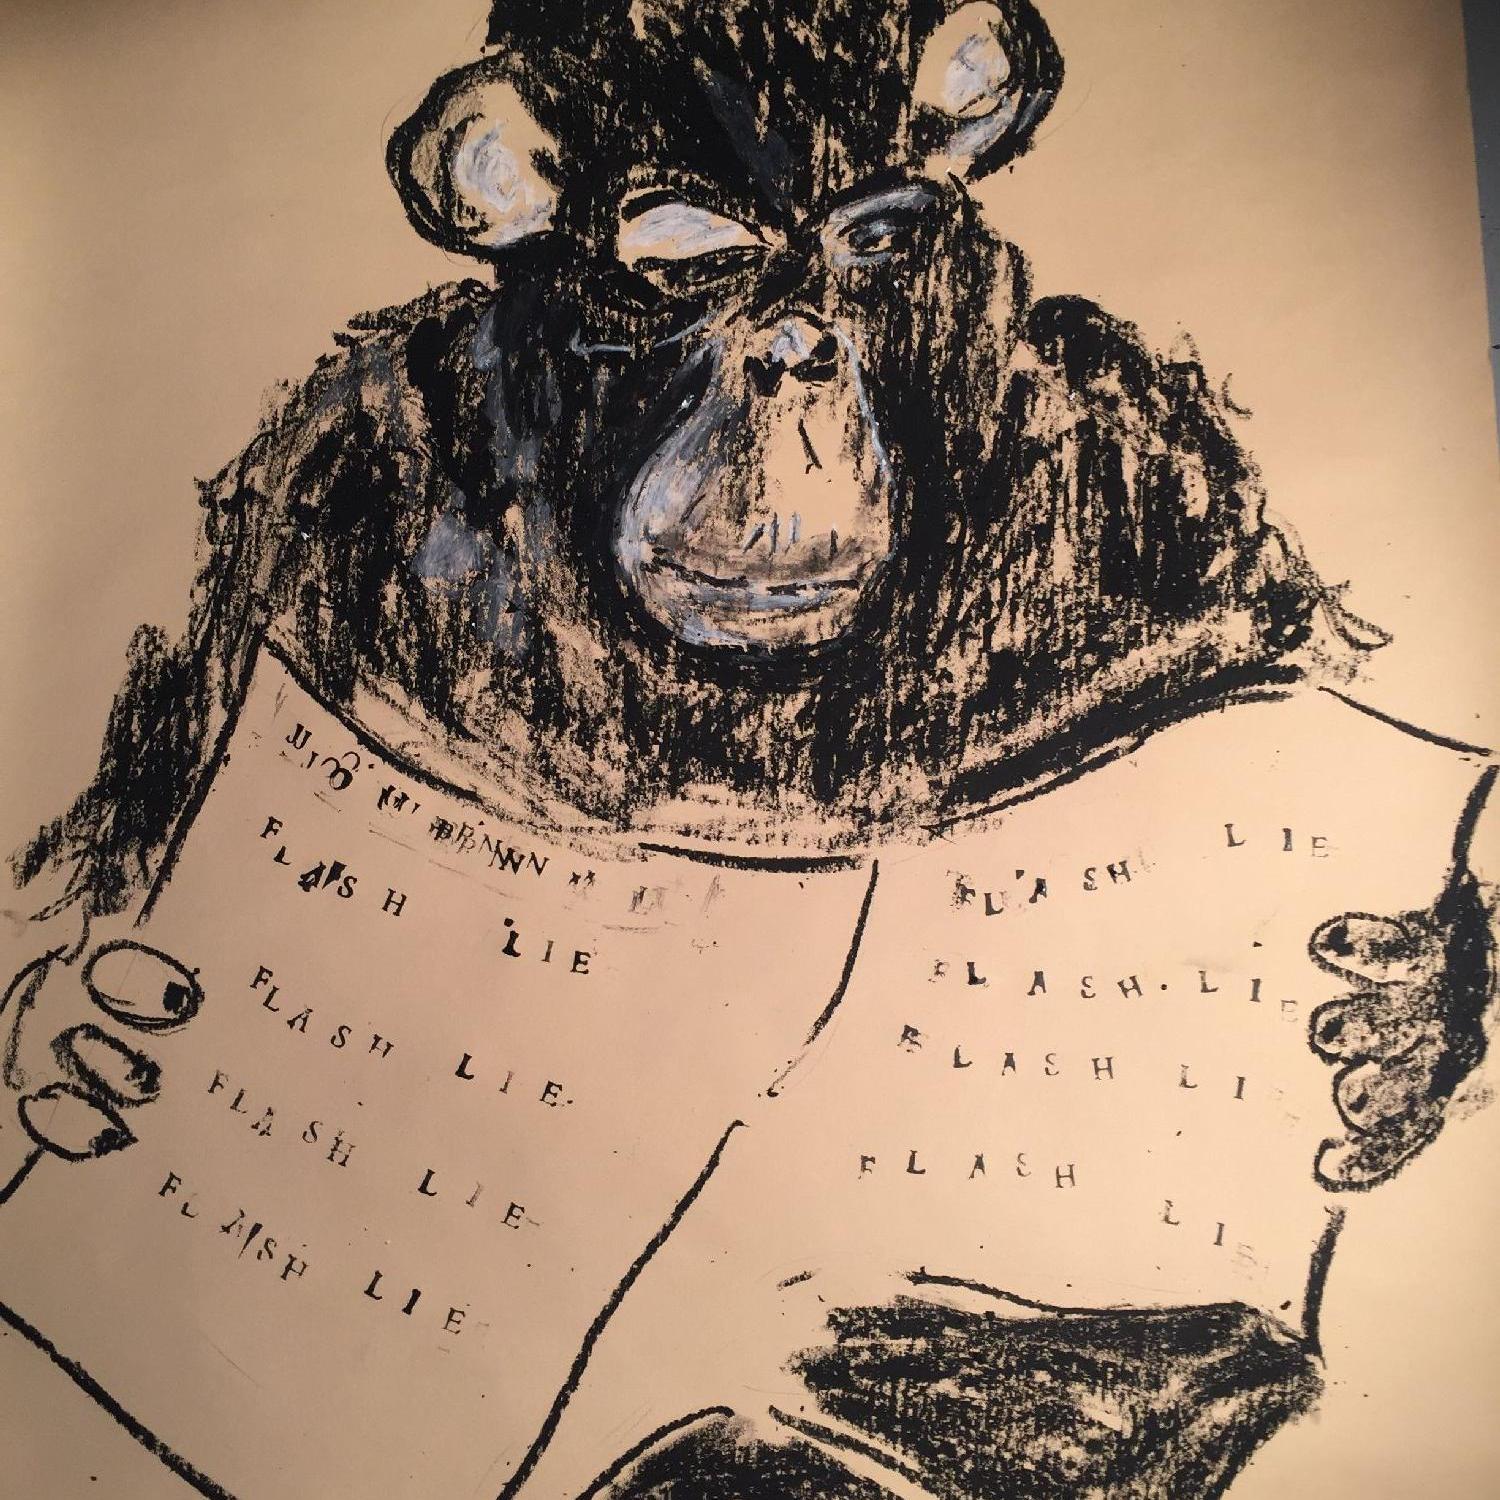 FLASH LIE
FLASH LIE.
FLASH LIE
FLASH LIE
FLASH LIE
FLASH. LIE
FLASH LIE
FLASH LIE